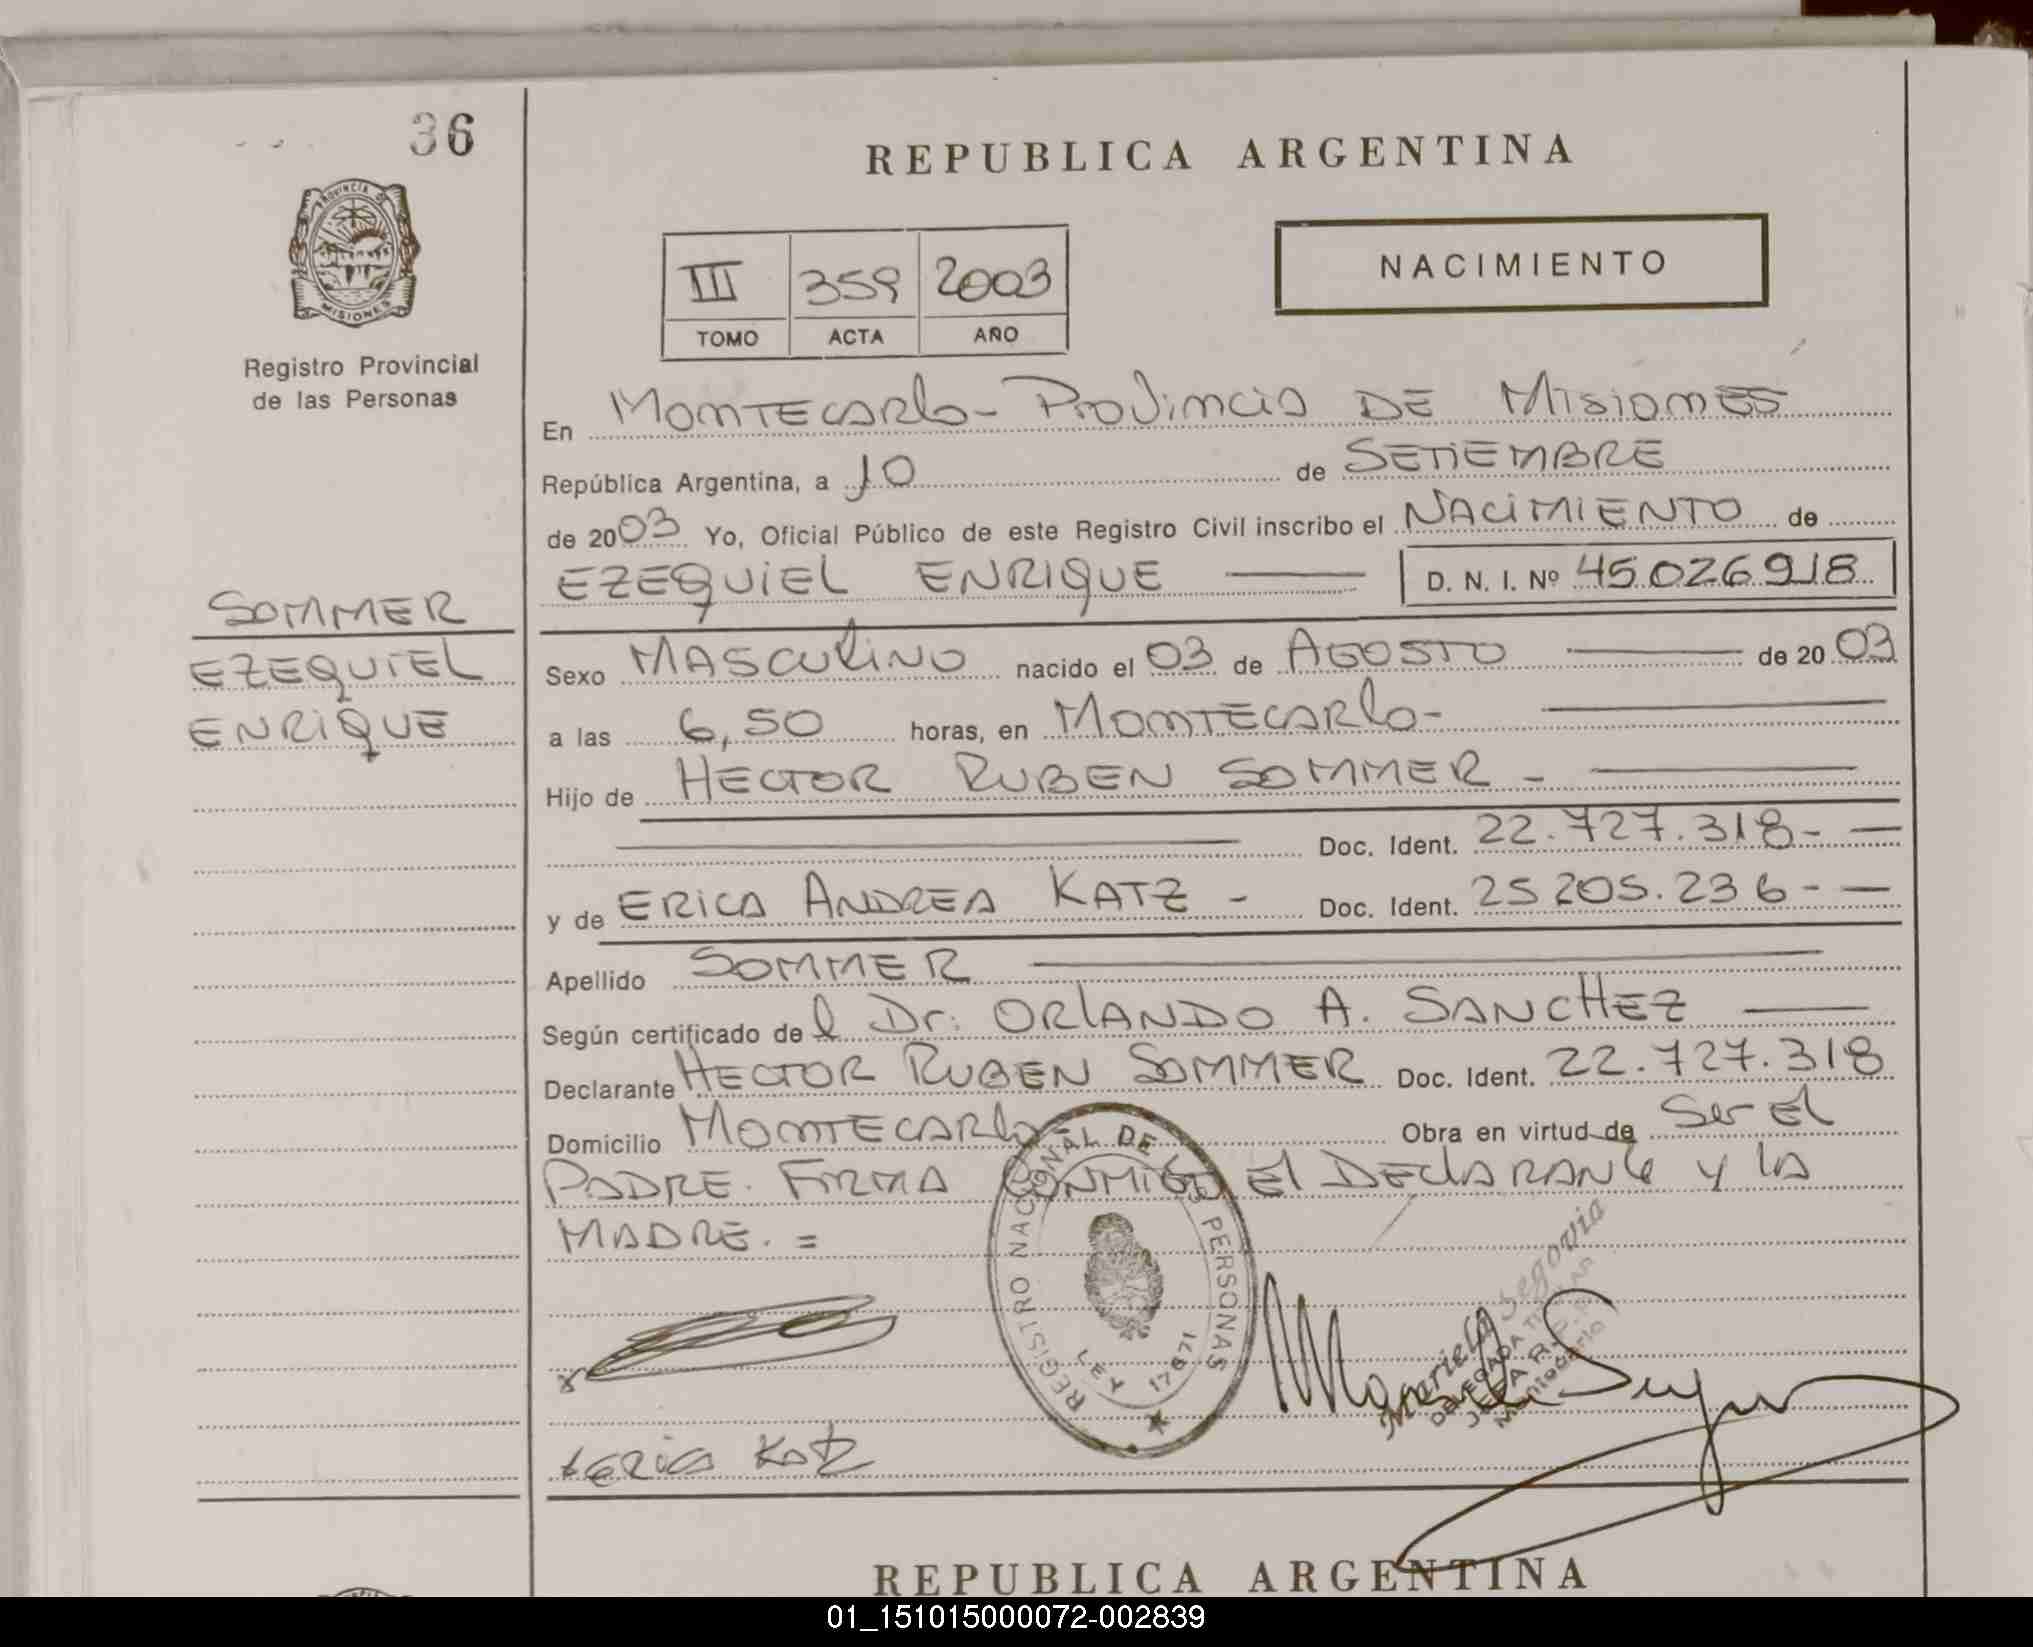 36
REPUBLICA ARGENTINA
PROVINCIA DE
MISIONES
Registro Provincial
de las Personas
III 359 2003
TOMO ACTA AÑO
NACIMIENTO
En MONTECARLO - PROVINCIA DE MISIONES
República Argentina, a 10 de SETIEMBRE
de 2003 Yo, Oficial Público de este Registro Civil inscribo el NACIMIENTO de
EZEQUIEL ENRIQUE D. N. I. Nº 45.026.918
SOMMER
EZEQUIEL
ENRIQUE
Sexo MASCULINO nacido el 03 de AGOSTO de 2003
a las 6,50 horas, en MONTECARLO-
Hijo de HECTOR RUBEN SOMMER -
Doc. Ident. 22.727.318-
y de ERICA ANDREA KATZ - Doc. Ident. 25205.236-
Apellido SOMMER
Según certificado de l Dr. ORLANDO A. SANCHEZ
Declarante HECTOR RUBEN SOMMER Doc. Ident. 22.727.318
Domicilio MONTECARLO Obra en virtud de Ser El
PADRE. FIRMA CONMIGO El DEClARANte y lA
MADRE. =
REGISTRO NACIONAL DE LAS PERSONAS
LEY 17671
Mariela Segovia
DELEGADA TITULAR
Montecarlo
Erica Katz
REPUBLICA ARGENTINA
01_151015000072-002839